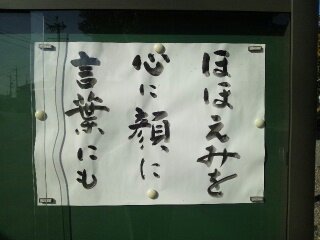 ほほえみを
心に顔に
言葉にも